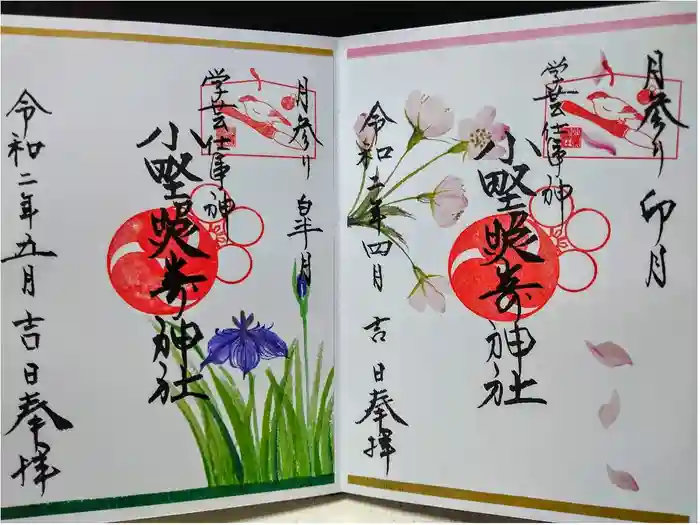 月参り 卯月
学芸仕事神
小野照崎神社
令和二年四月 吉日奉拝
月参り 皐月
学芸仕事神
小野照崎神社
令和二年五月吉日奉拝